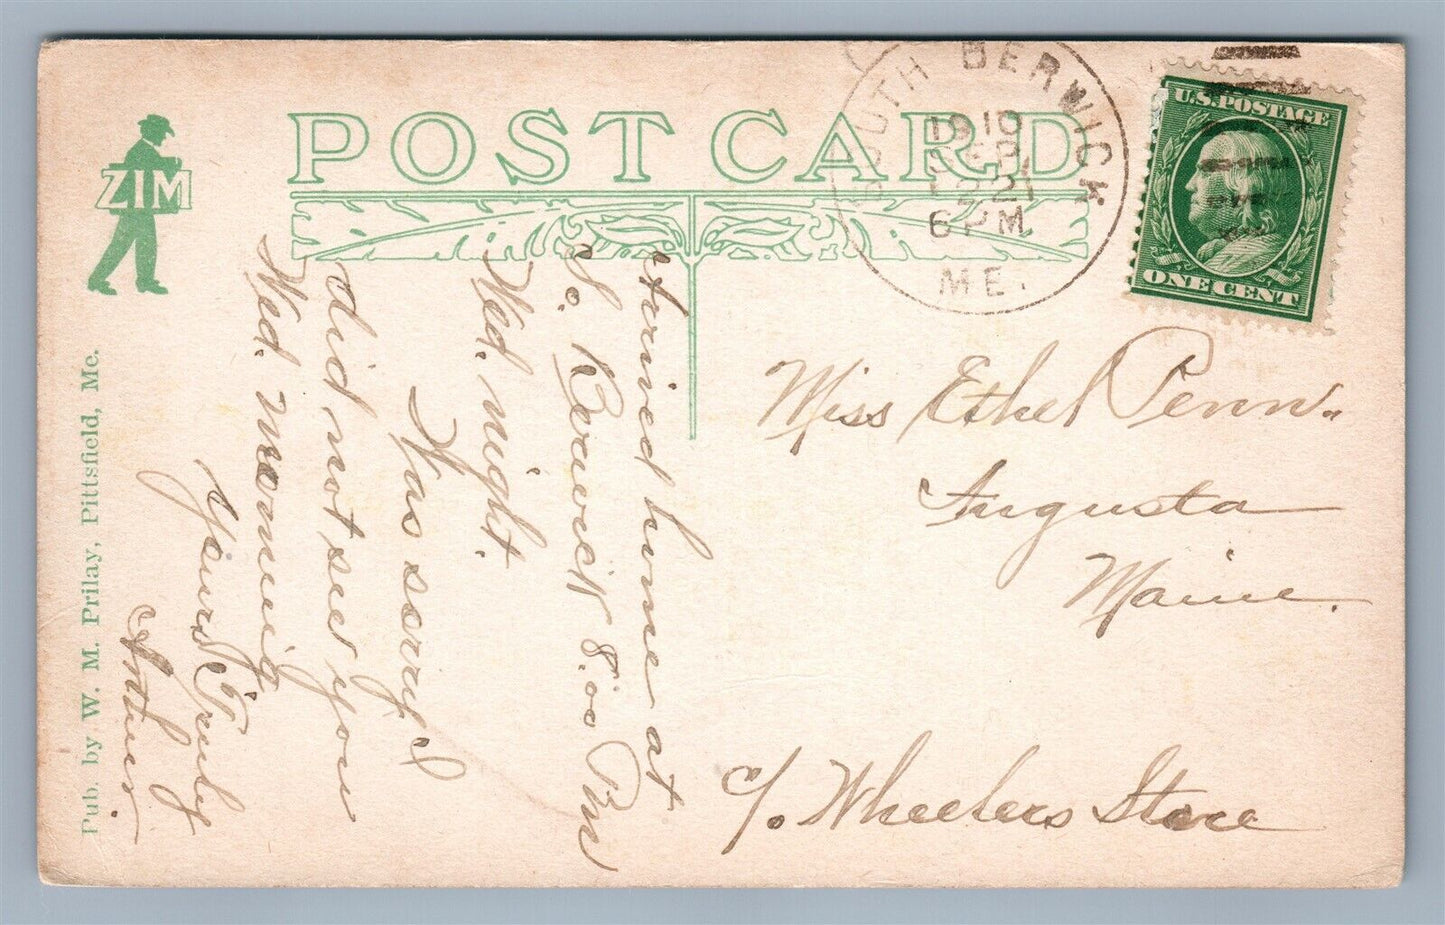 POST CARD
ZIM
SOUTH BERWICK
1910
SEP
22
6 PM
ME.
U.S. POSTAGE
ONE CENT
Miss Ethel Penn.
Augusta
Maine.
c/o Wheelers Store
Arrived home at
So. Berwick 8.00 PM
Wed. night.
Was sorry I
did not see you
Wed. morning
Yours Truly
Arthur.
Pub. by W. M. Prilay, Pittsfield, Me.